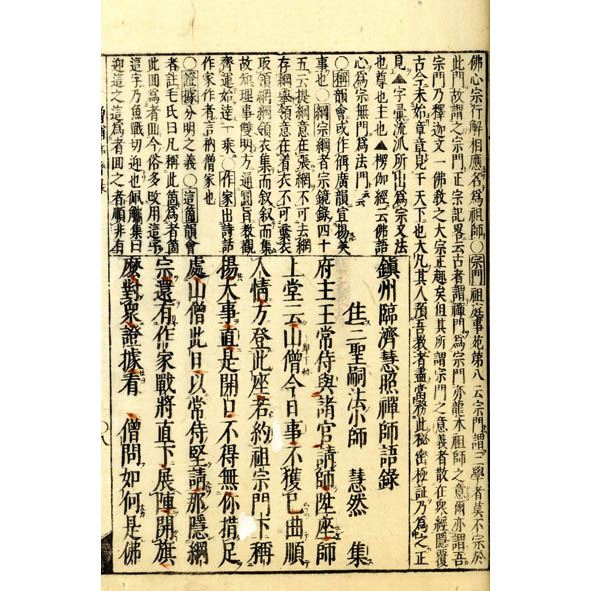 佛心宗行解相應名爲祖師〇宗門祖庭事苑第八云宗門謂三學者莫不宗於
此門故謂之宗門正宗記畧云古者謂禪門爲宗門亦龍木祖師之意爾亦謂吾
宗門乃釋迦文一佛教之大宗正趣矣但其所謂宗門之意義者散在衆經隱覆
古今未始章章見于天下也大凡其人預吾教者盡當務此秘密極証乃爲之正
見▲字彙流派所出爲宗又法
也尊也主也▲楞伽經云佛語
心爲宗無門爲法門
〇稱韻會或作偁廣韻宣揚美
事也〇綱宗綱者宗鏡錄四十
存綱擧領意在着衣不可棄衣
取領綱綱領衣集而叙叙而集
故知理事雙明方通圓旨教觀
齊運始達一乘〇作家出詩話
作家作者言衲僧家也
〇證據分明之義〇這箇韻會
者註毛氏曰凡稱此箇爲者箇
此回爲者回今俗多改用這字
這字乃魚戰切迎也
迎這之這爲者回之者順非有
鎭州臨濟慧照禪師語錄
住三聖嗣法小師 慧然 集
府主王常侍與諸官請師陞座師
上堂云山僧今日事不獲已曲順
人情方登此座若約祖宗門下稱
揚大事直是開口不得無你措足
處山僧此日以常侍堅請那隱綱
宗還有作家戰將直下展陣開旗
麼對衆證據看 僧問如何是佛